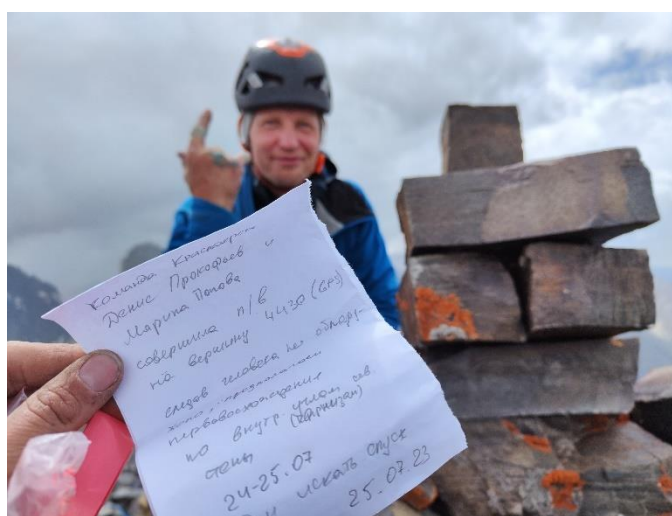 Команда Красноярск
Денис Прокофьев и
Марина Попова
совершила п/в
на вершину 4430 (GPS)
следов человека не обнару-
жено, предполагаем
первовосхождение
по внутр. углом сев.
стены (карнизам)
24-25.07
искать спуск
25.07.23